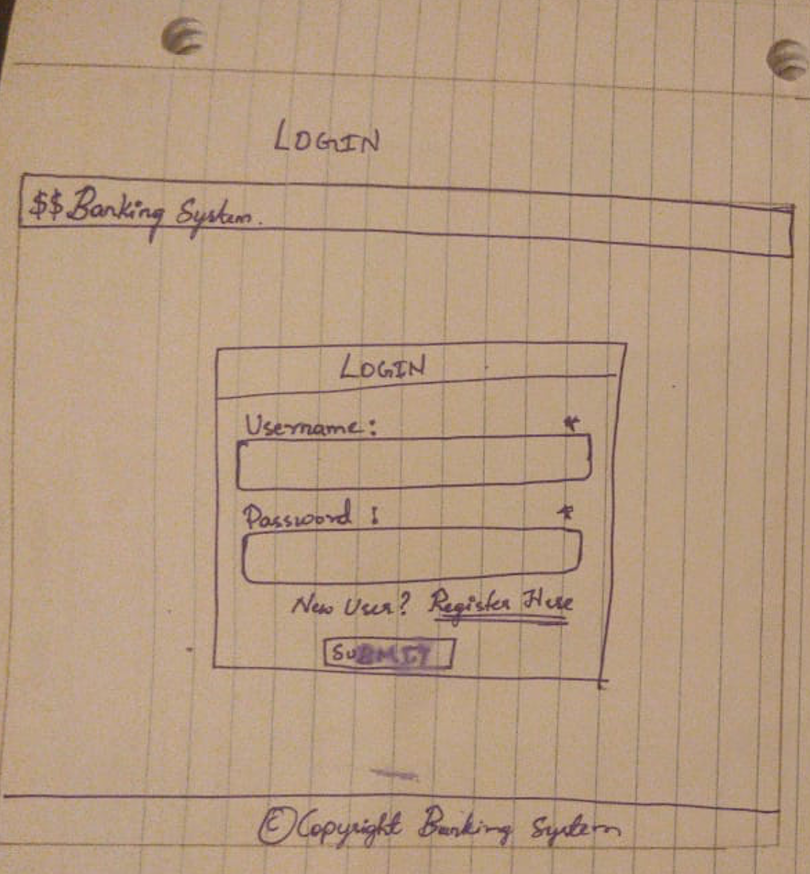 LOGIN
$$ Banking System.
LOGIN
Username: *
Password : *
New User? Register Here
SUBMIT
©Copyright Banking System